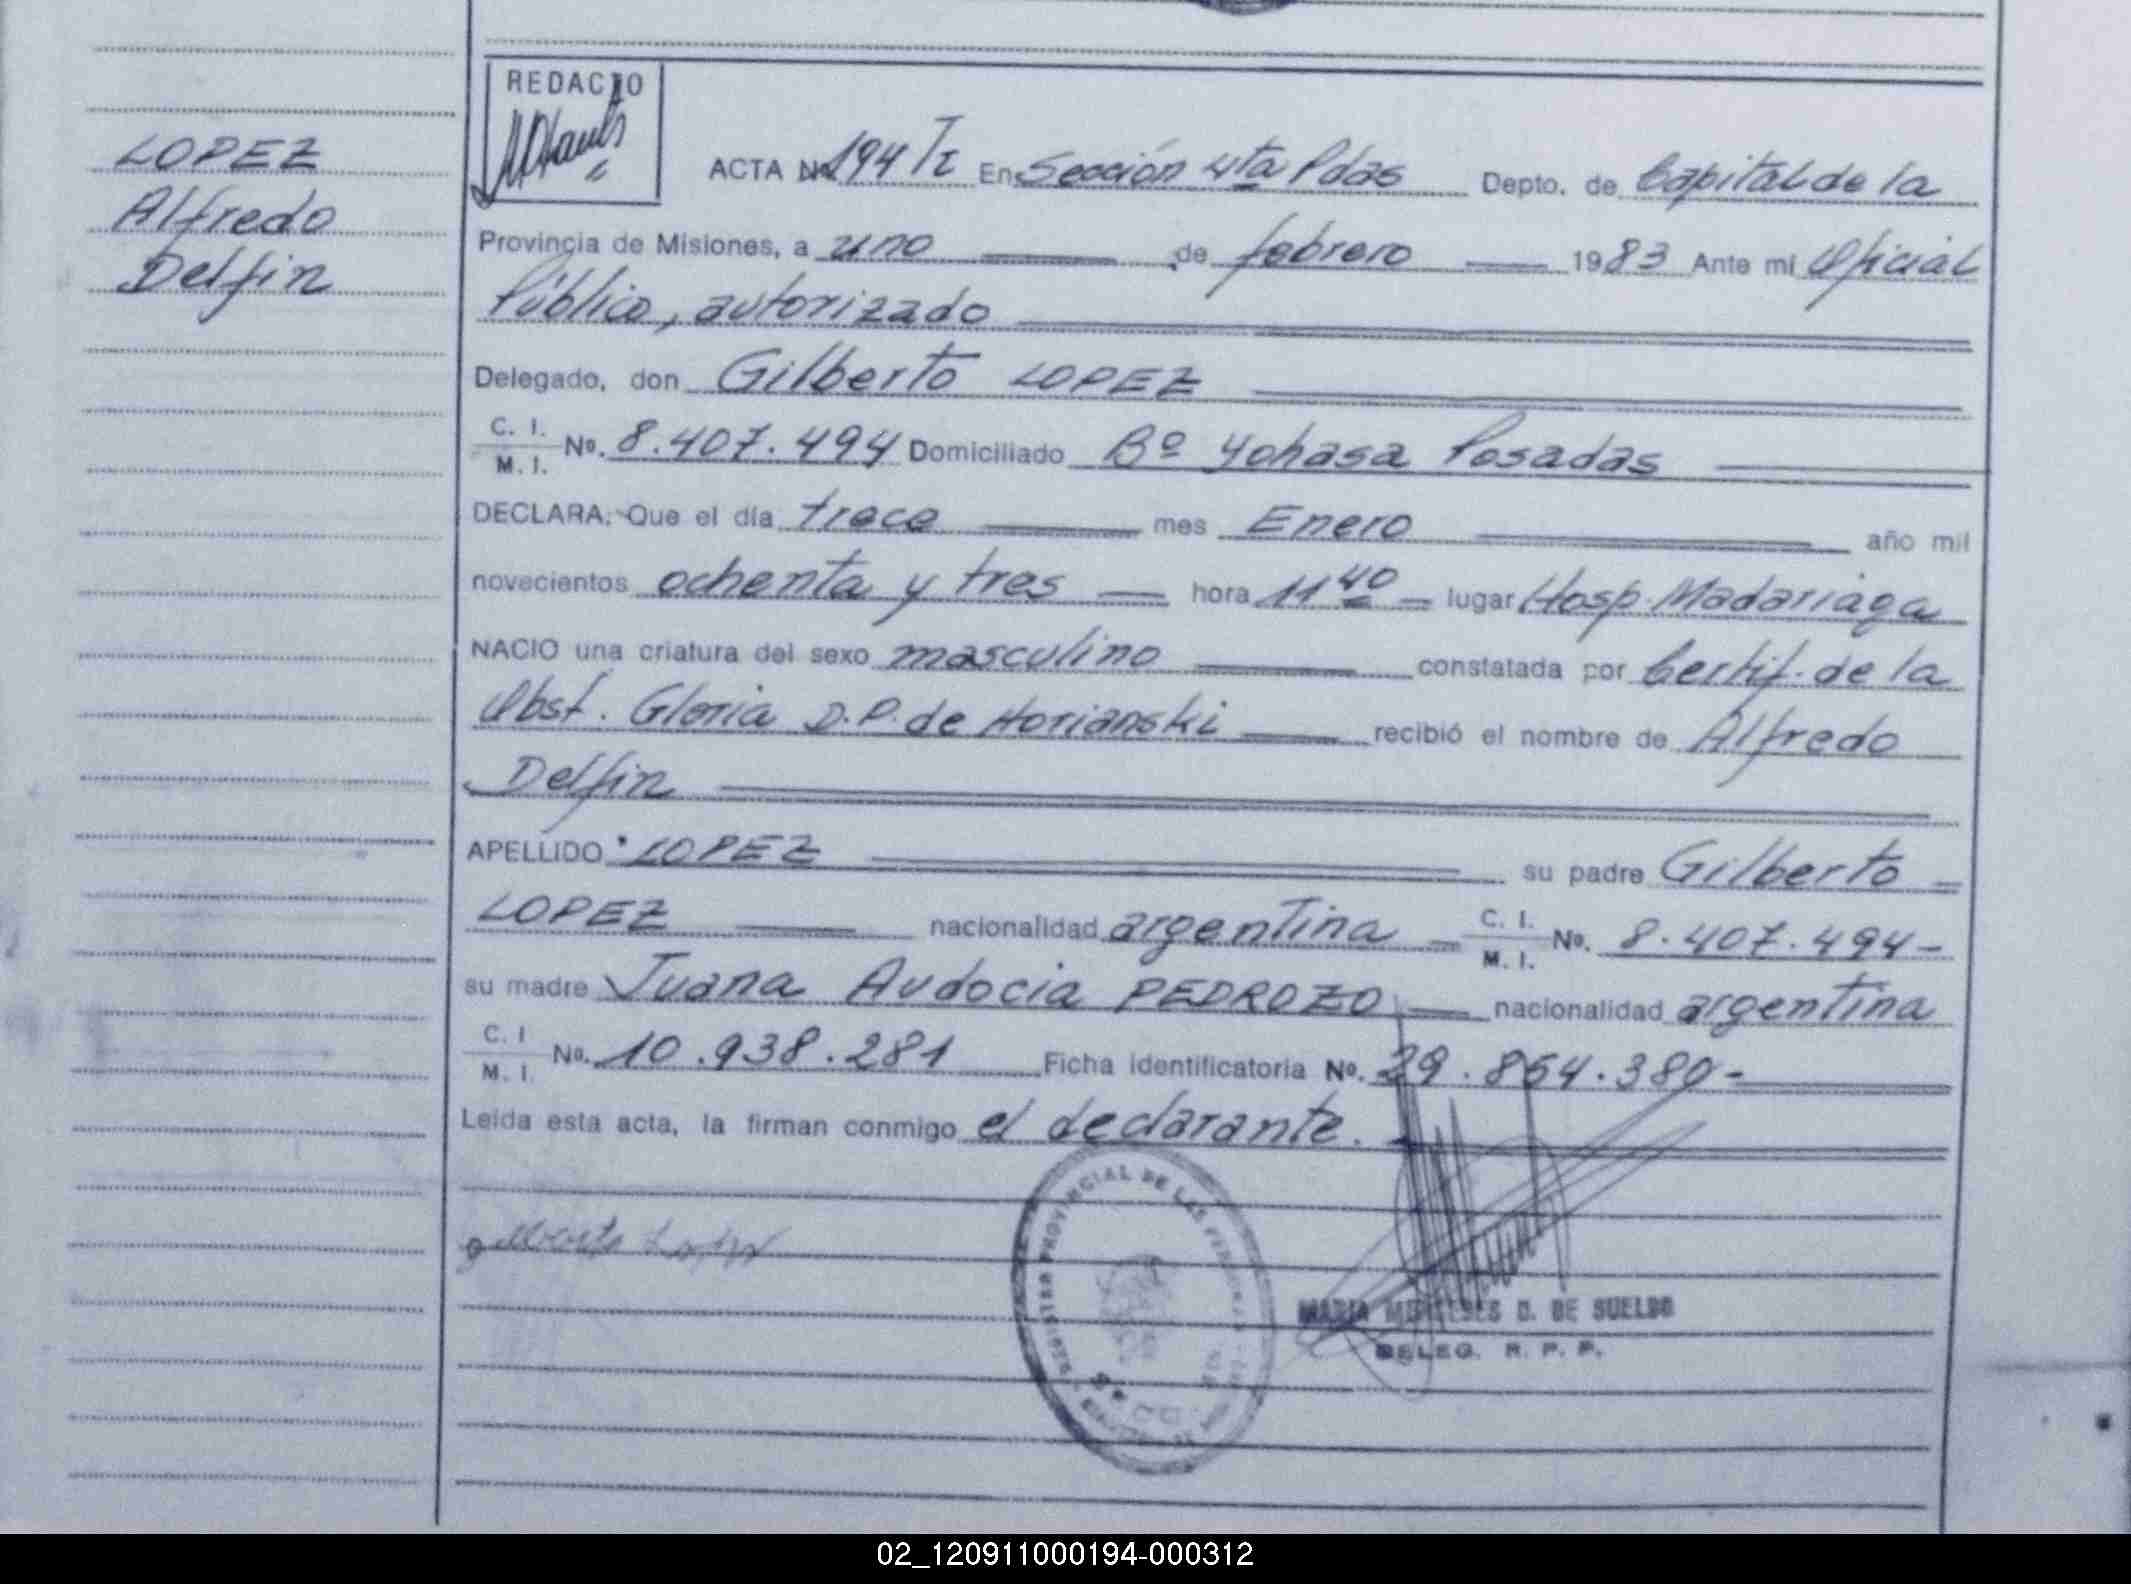 REDACTO
LOPEZ
Alfredo
Delfin
ACTA No 194 TI En Sección 4ta Pdas Depto. de Capital de la
Provincia de Misiones, a uno de febrero 1983 Ante mi Oficial
Público, autorizado
Delegado, don Gilberto LOPEZ
C. I. M. I. No. 8.407.494 Domiciliado Bº Yohasa Posadas
DECLARA: Que el día trece mes Enero año mil
novecientos ochenta y tres hora 11 40 lugar Hosp. Madariaga
NACIO una criatura del sexo masculino constatada por Certif. de la
Obst. Gloria D.P. de Horianski recibió el nombre de Alfredo
Delfin
APELLIDO LOPEZ su padre Gilberto
LOPEZ nacionalidad argentina C. I. M. I. No. 8.407.494-
su madre Juana Audocia PEDROZO nacionalidad argentina
C. I M. I. No. 10.938.281 Ficha identificatoria No. 29.864.380-
Leída esta acta, la firman conmigo el declarante.
gilberto Lopez
REGISTRO PROVINCIAL DE LAS PERSONAS
MARIA MERCEDES D. DE SUELDO
DELEG. R. P. P.
02_120911000194-000312